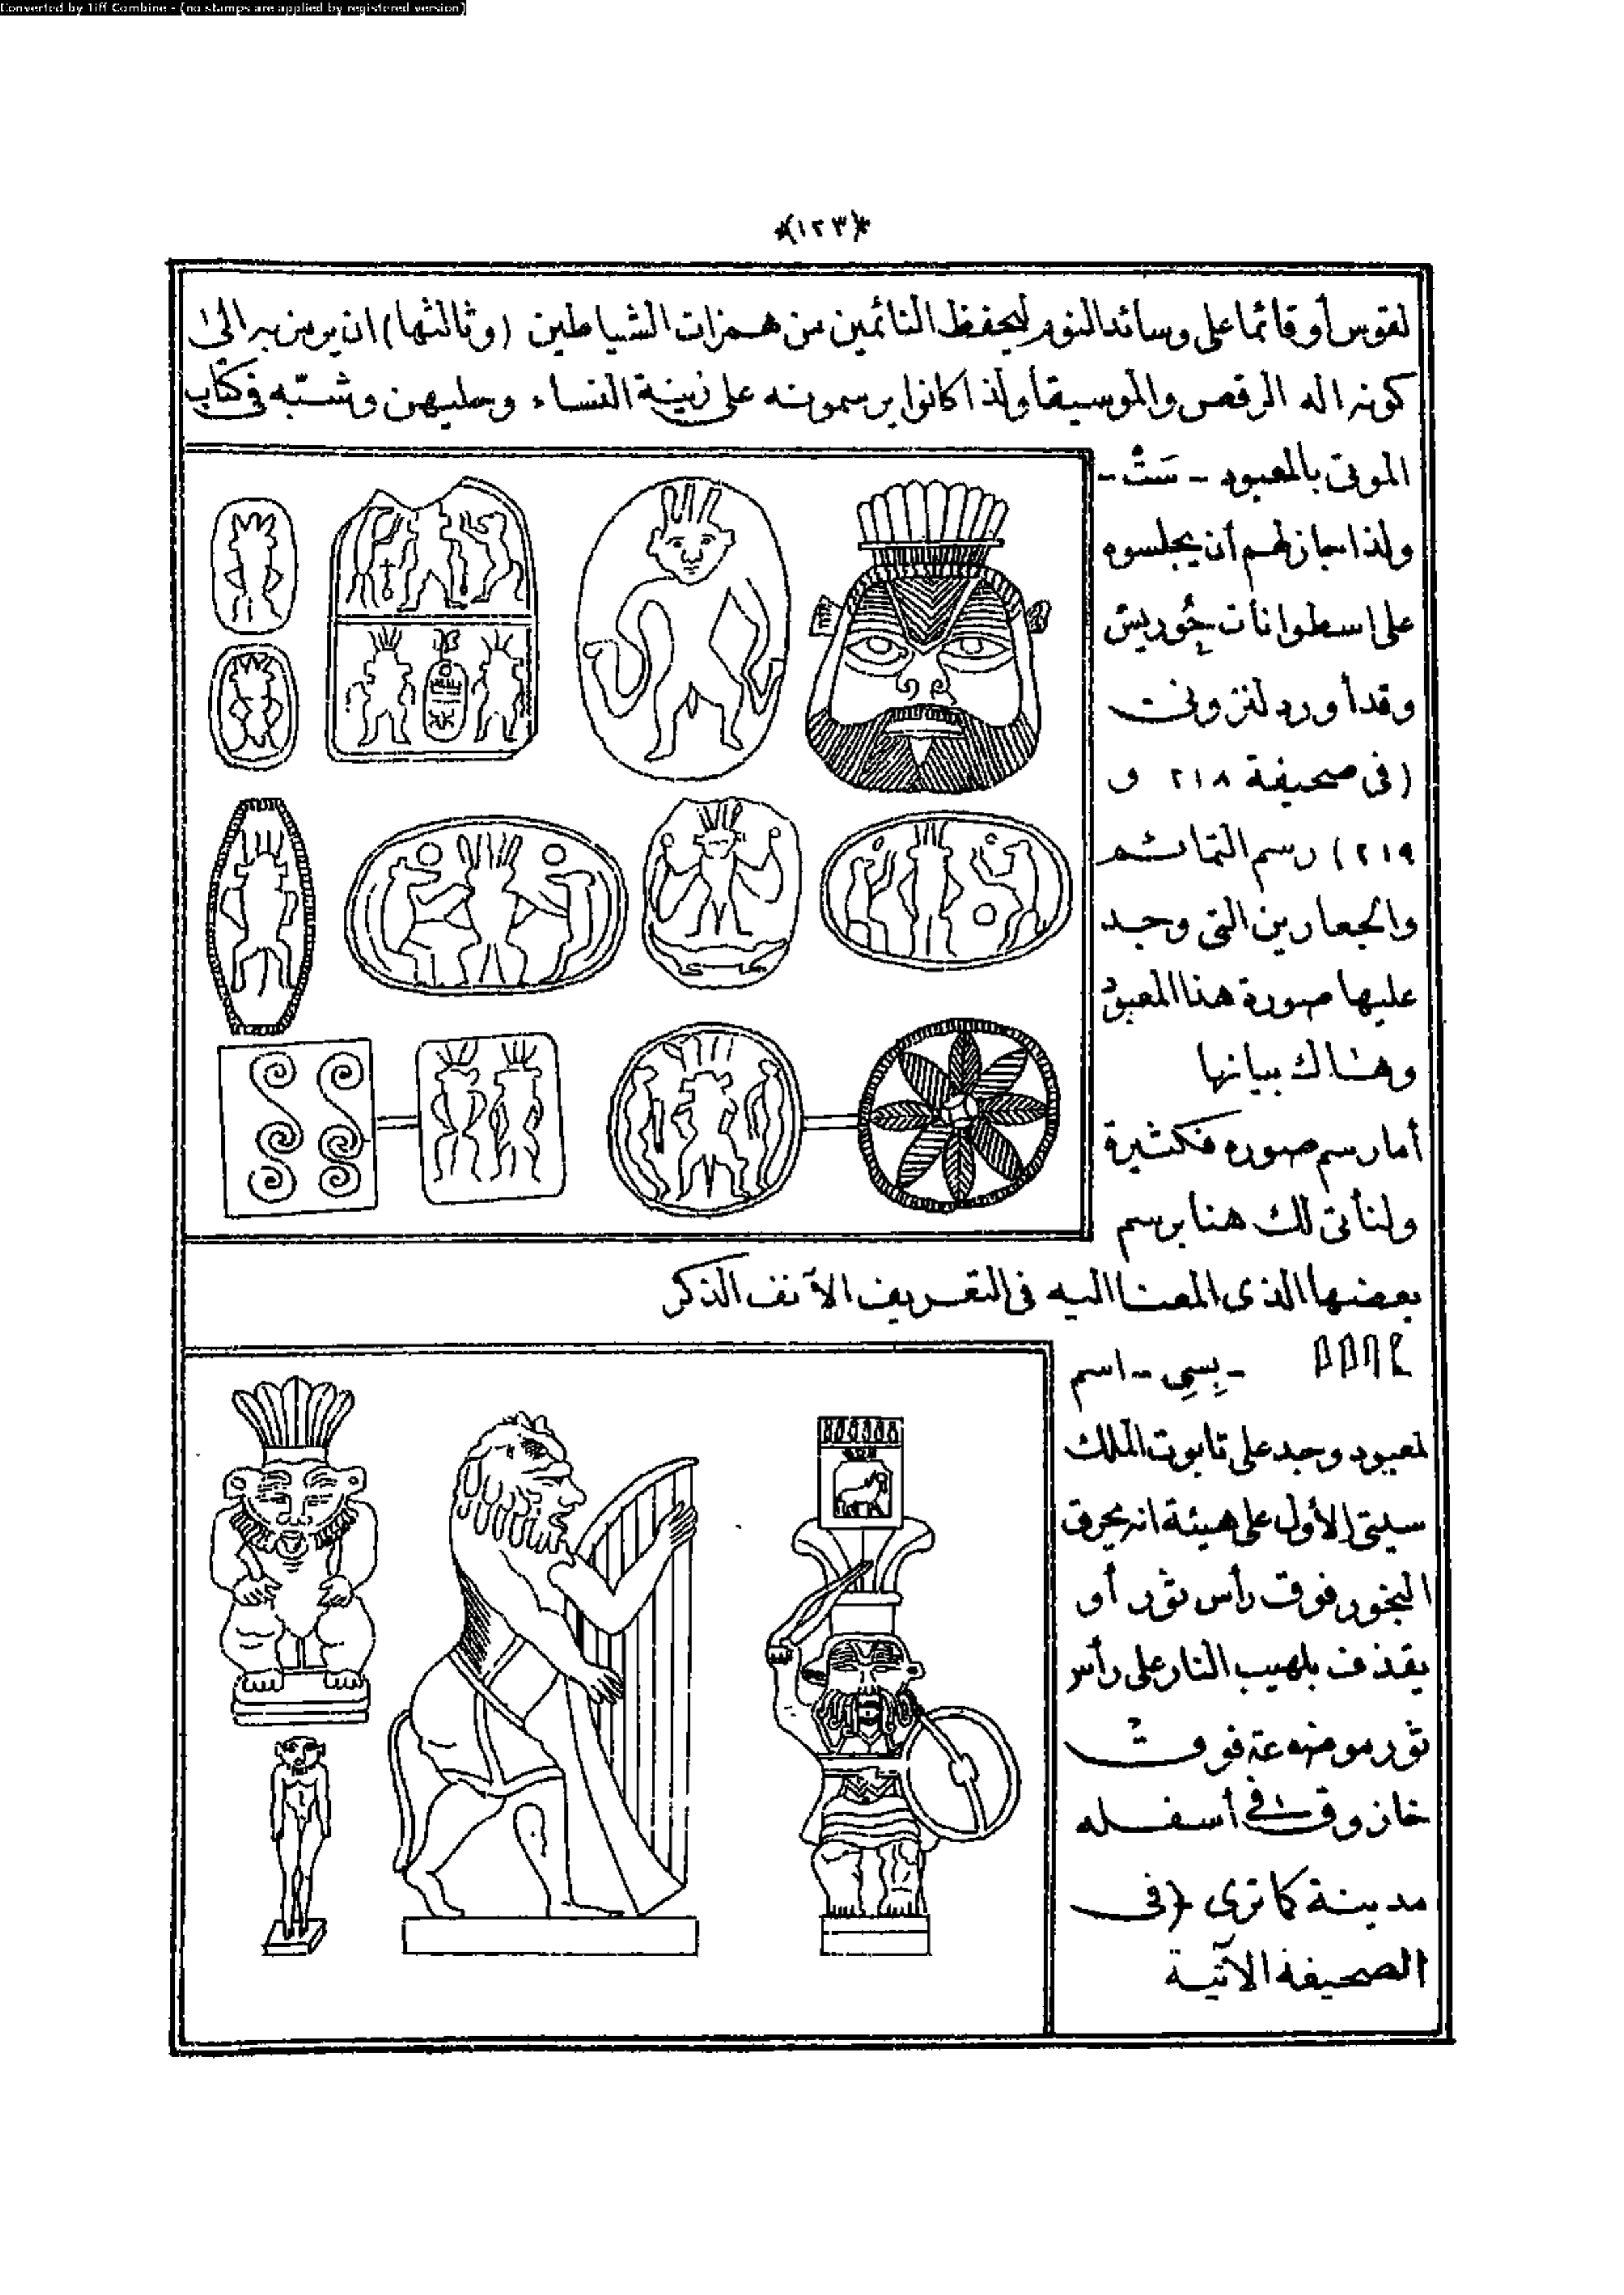 Converted by Tiff Combine - (no stamps are applied by registered version)
*(١٢٣)*
لقوس أو قائما على وسائد النوم ليحفظ النائمين من همزات الشياطين (وثالثها) ان يرمز به الى
كونه اله الرقص والموسيقا ولذا كانوا يرسمونه على زينة النساء وحليهن وشبّه فى كتاب
الموتى بالمعبود - سَتْ -
ولذا جاز لهم أن يجلسوه
على اسطوانات حُوريس
وقد أورد لنزونى
(فى صحيفة ٢١٨ و
٢١٩) رسم التمائم
والجعارين التى وجد
عليها صورة هذا المعبود
وهناك بيانها
أما رسم صوره فكثيرة
ولنأتى لك هنا برسم
بعضها الذى المعنا اليه فى التعريف الآنف الذكر
- بِسِى - اسم
لمعبود وجد على تابوت الملك
سيتى الأول على هيئة انه يحرق
البخور فوق رأس ثور أو
يقذف بلهيب النار على رأس
ثور موضوعة فوق
خازوق فى أسفله
مدينة كما ترى (فى
الصحيفة الآتية